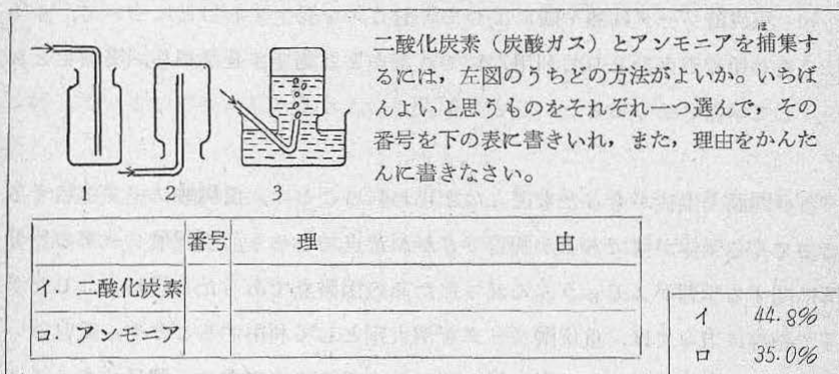 二酸化炭素（炭酸ガス）とアンモニアを捕集す
るには，左図のうちどの方法がよいか。いちば
んよいと思うものをそれぞれ一つ選んで，その
番号を下の表に書きいれ，また，理由をかんた
んに書きなさい。
1 2 3
番号 理 由
イ．二酸化炭素
ロ．アンモニア
イ 44.8%
ロ 35.0%